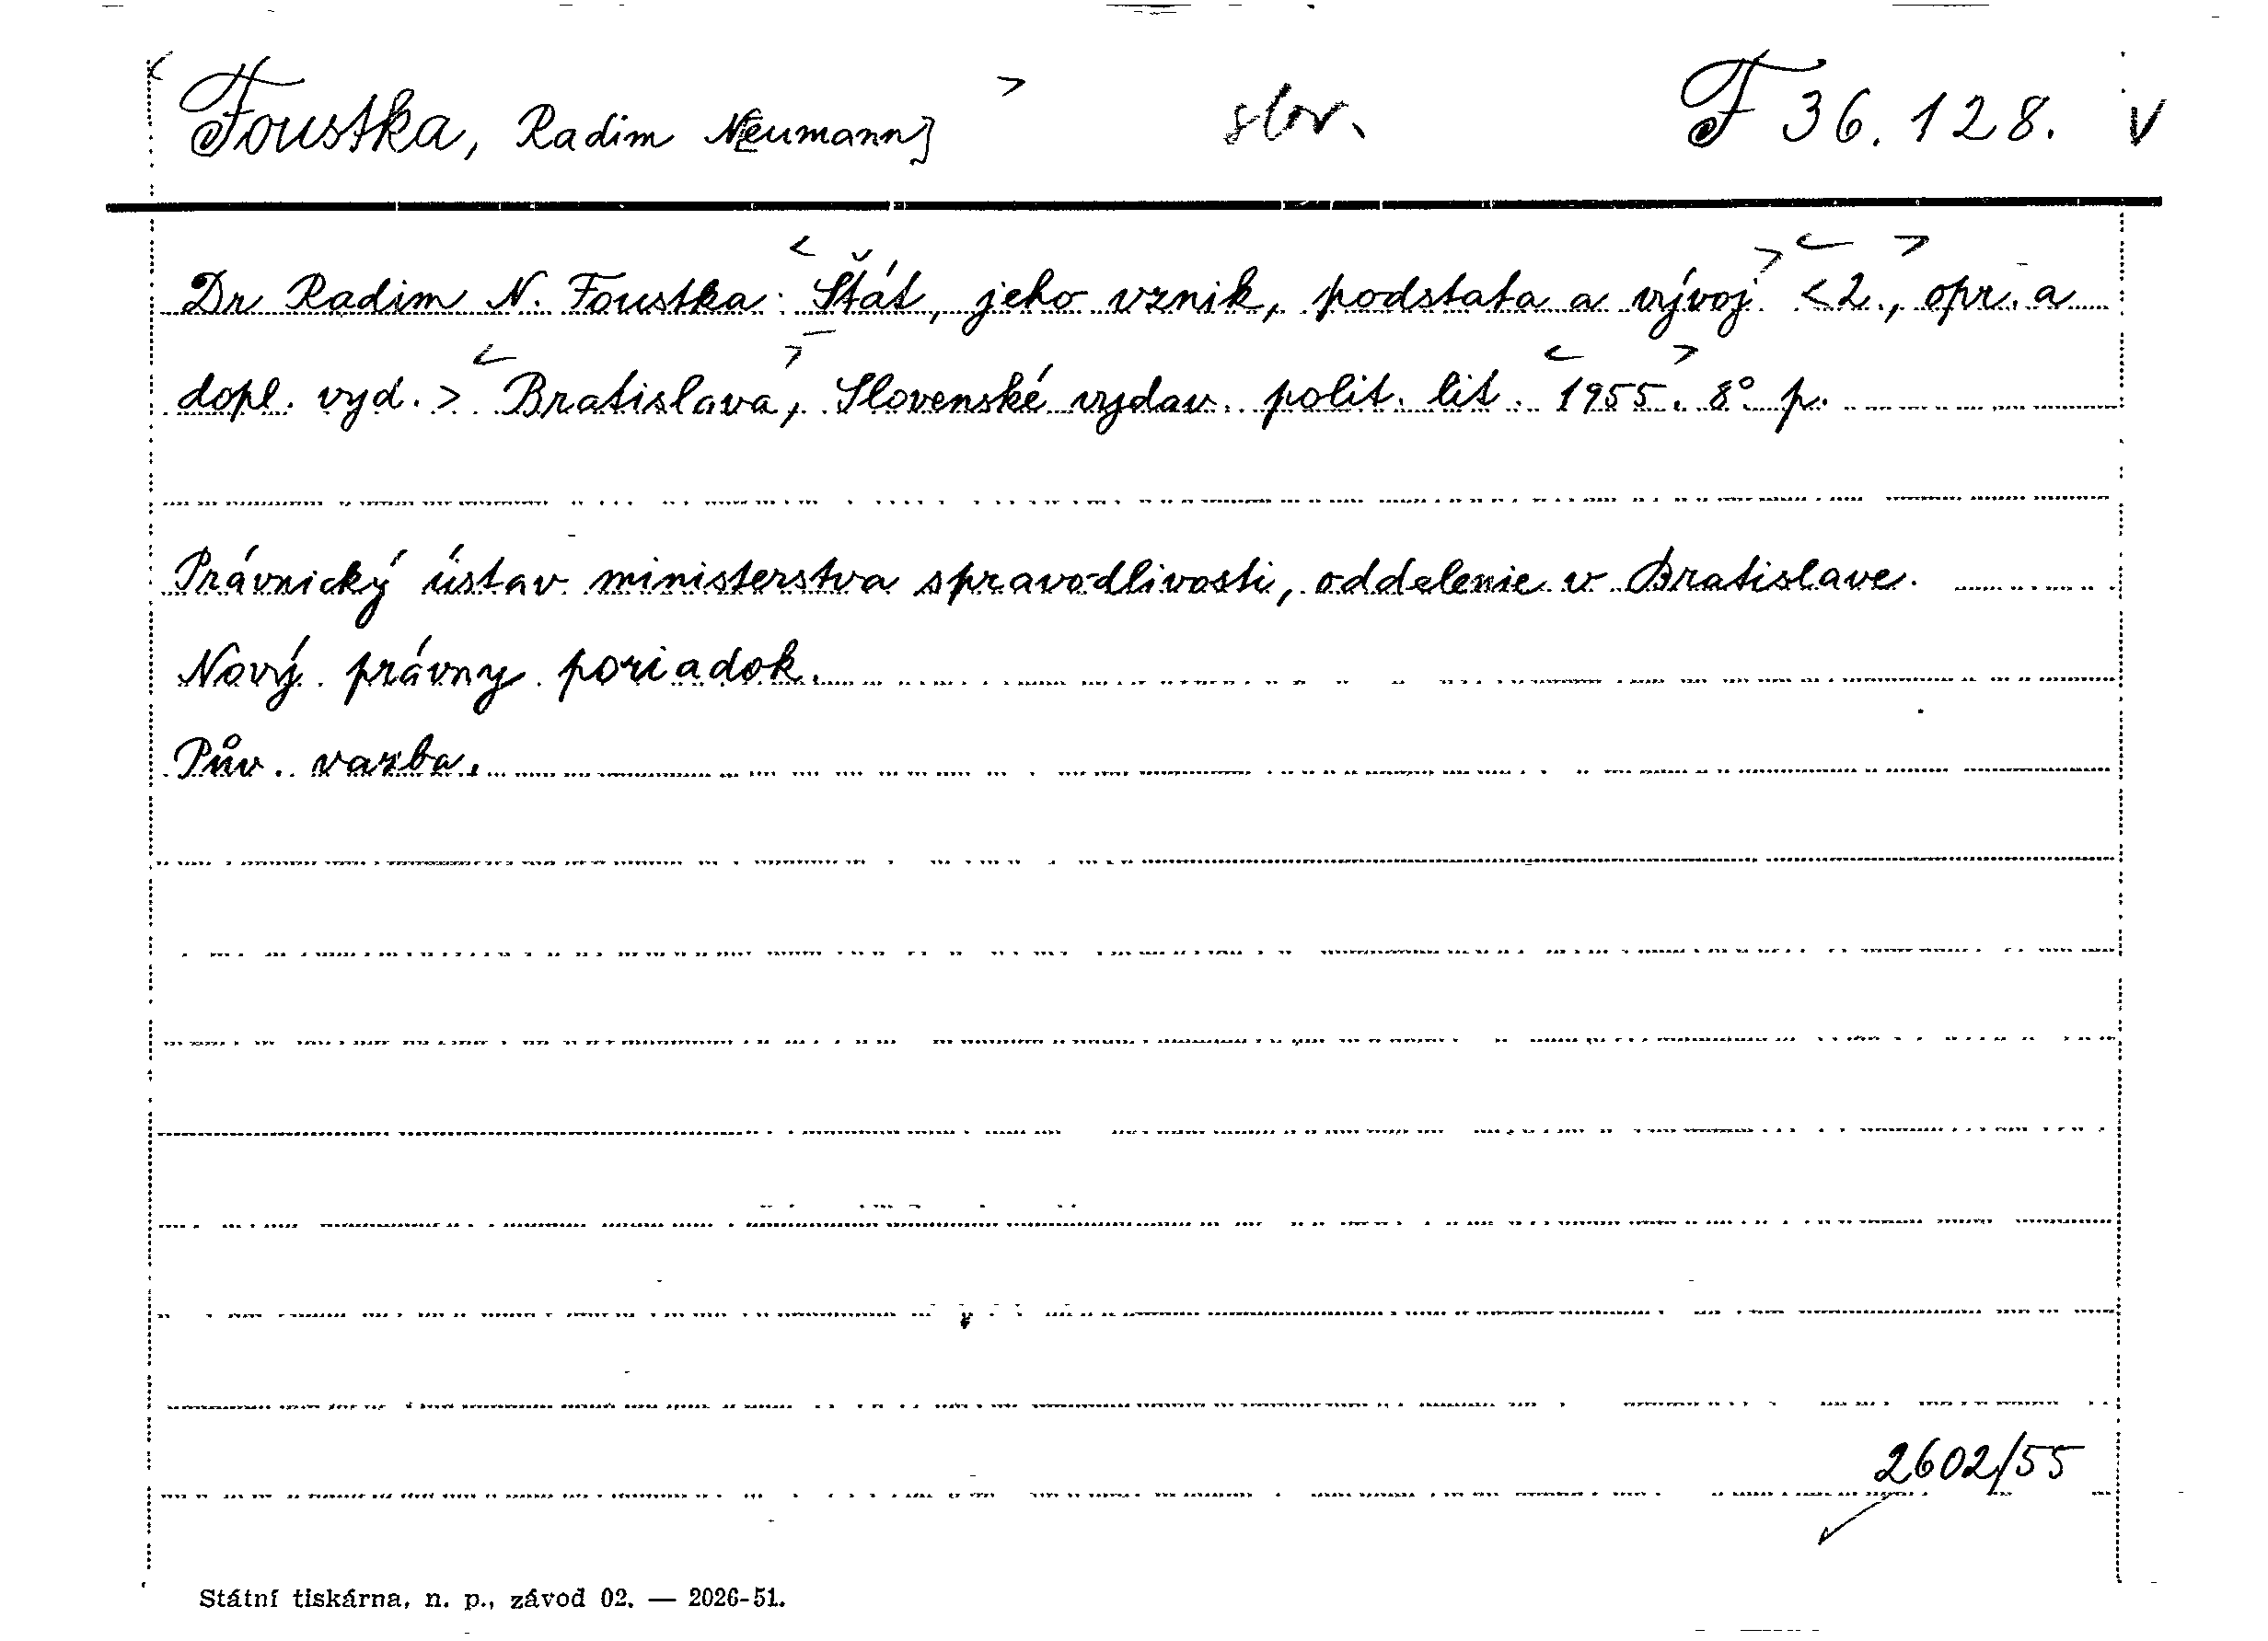 Foustka, Radim Neumann] slov. F 36.128. V
Dr Radim N. Foustka: Štát, jeho vznik, podstata a vývoj. <2., opr. a
dopl. vyd.> Bratislava, Slovenské vydav. polit. lit. 1955. 8° p.
Právnický ústav ministerstva spravodlivosti, oddelenie v Bratislave.
Nový právny poriadok.
Pův. vazba.
2602/55
Státní tiskárna, n. p., závod 02. — 2026-51.